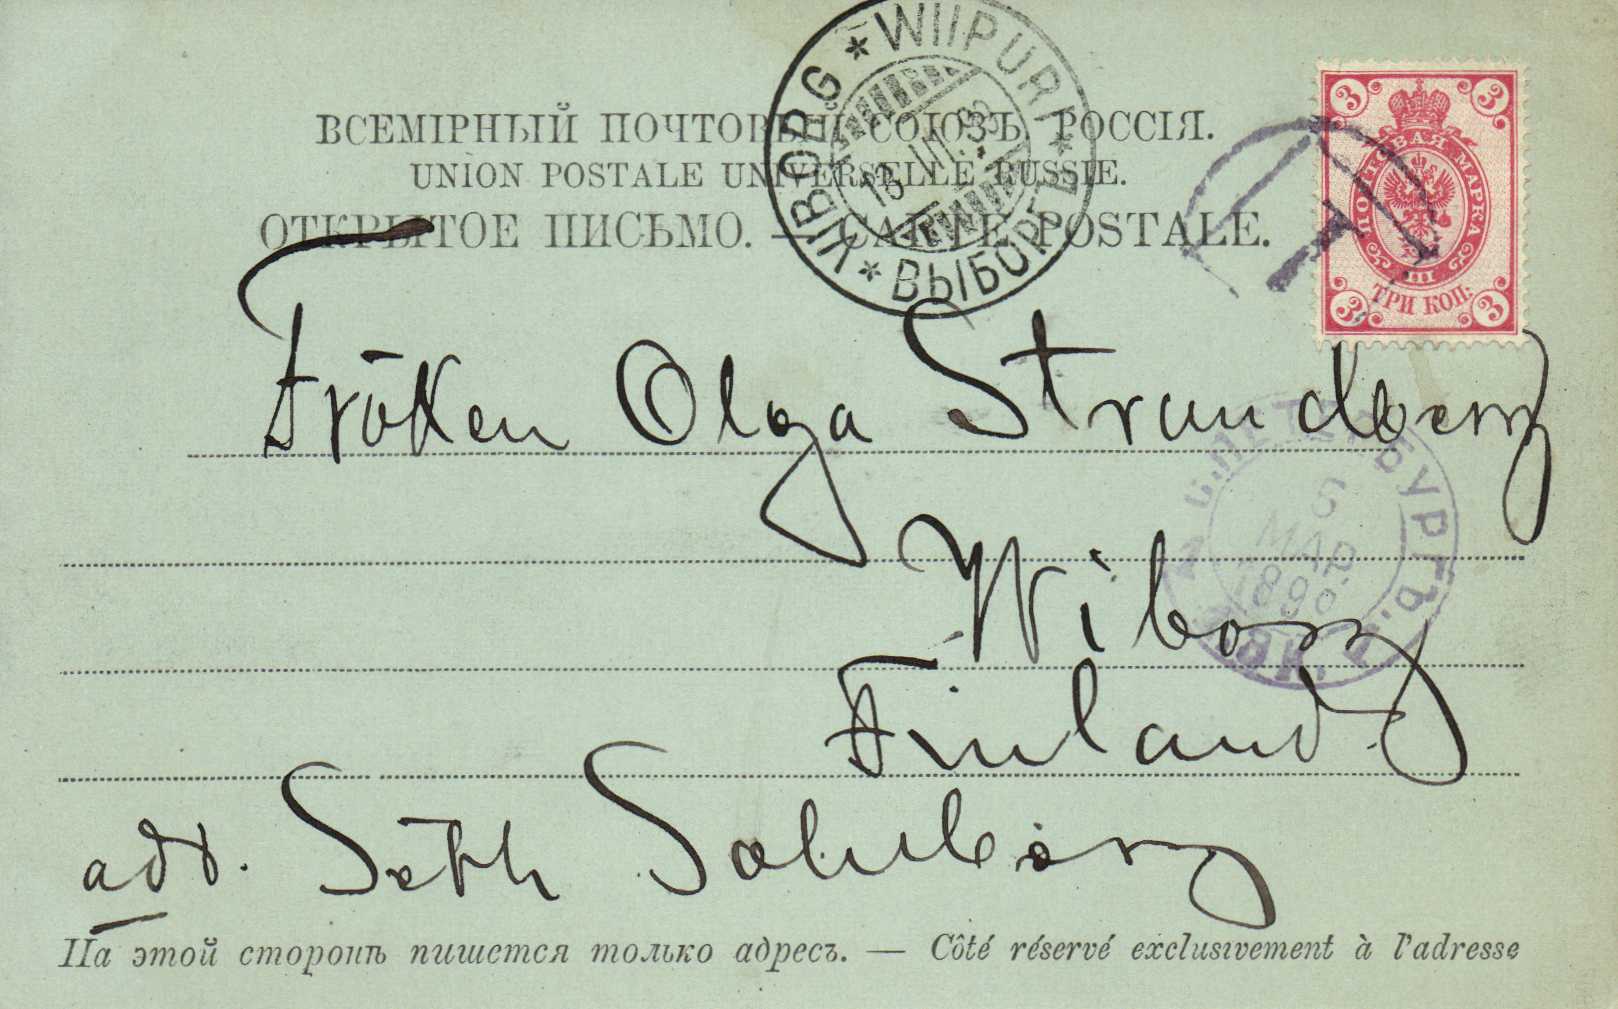 ВСЕМІРНЫЙ ПОЧТОВЫЙ СОЮЗЪ. РОССІЯ.
UNION POSTALE UNIVERSELLE RUSSIE.
ОТКРЫТОЕ ПИСЬМО. — CARTE POSTALE.
WIIPURI * ВЫБОРГЪ * WIBORG *
13.III.98
3 3
ПОЧТОВАЯ МАРКА
III
ТРИ КОП.
3 3
Fröken Olga Strandberg
С.ПЕТЕРБУРГЪ
6
МАР
1898
Wiborg
Finland
adr. Seth Sohlberg
На этой сторонѣ пишется только адресъ. — Côté réservé exclusivement à l'adresse